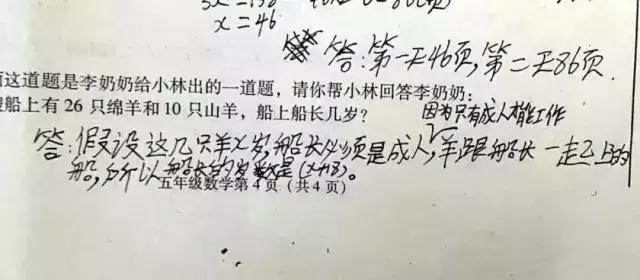 x=46
答:第一天46页,第二天86页.
这道题是李奶奶给小林出的一道题,请你帮小林回答李奶奶:
船上有26只绵羊和10只山羊,船上船长几岁?
因为只有成人才能工作
答:假设这几只羊x岁,船长必须是成人,羊跟船长一走上的
船,所以船长的岁数是(x+18)。
五年级数学第4页(共4页)